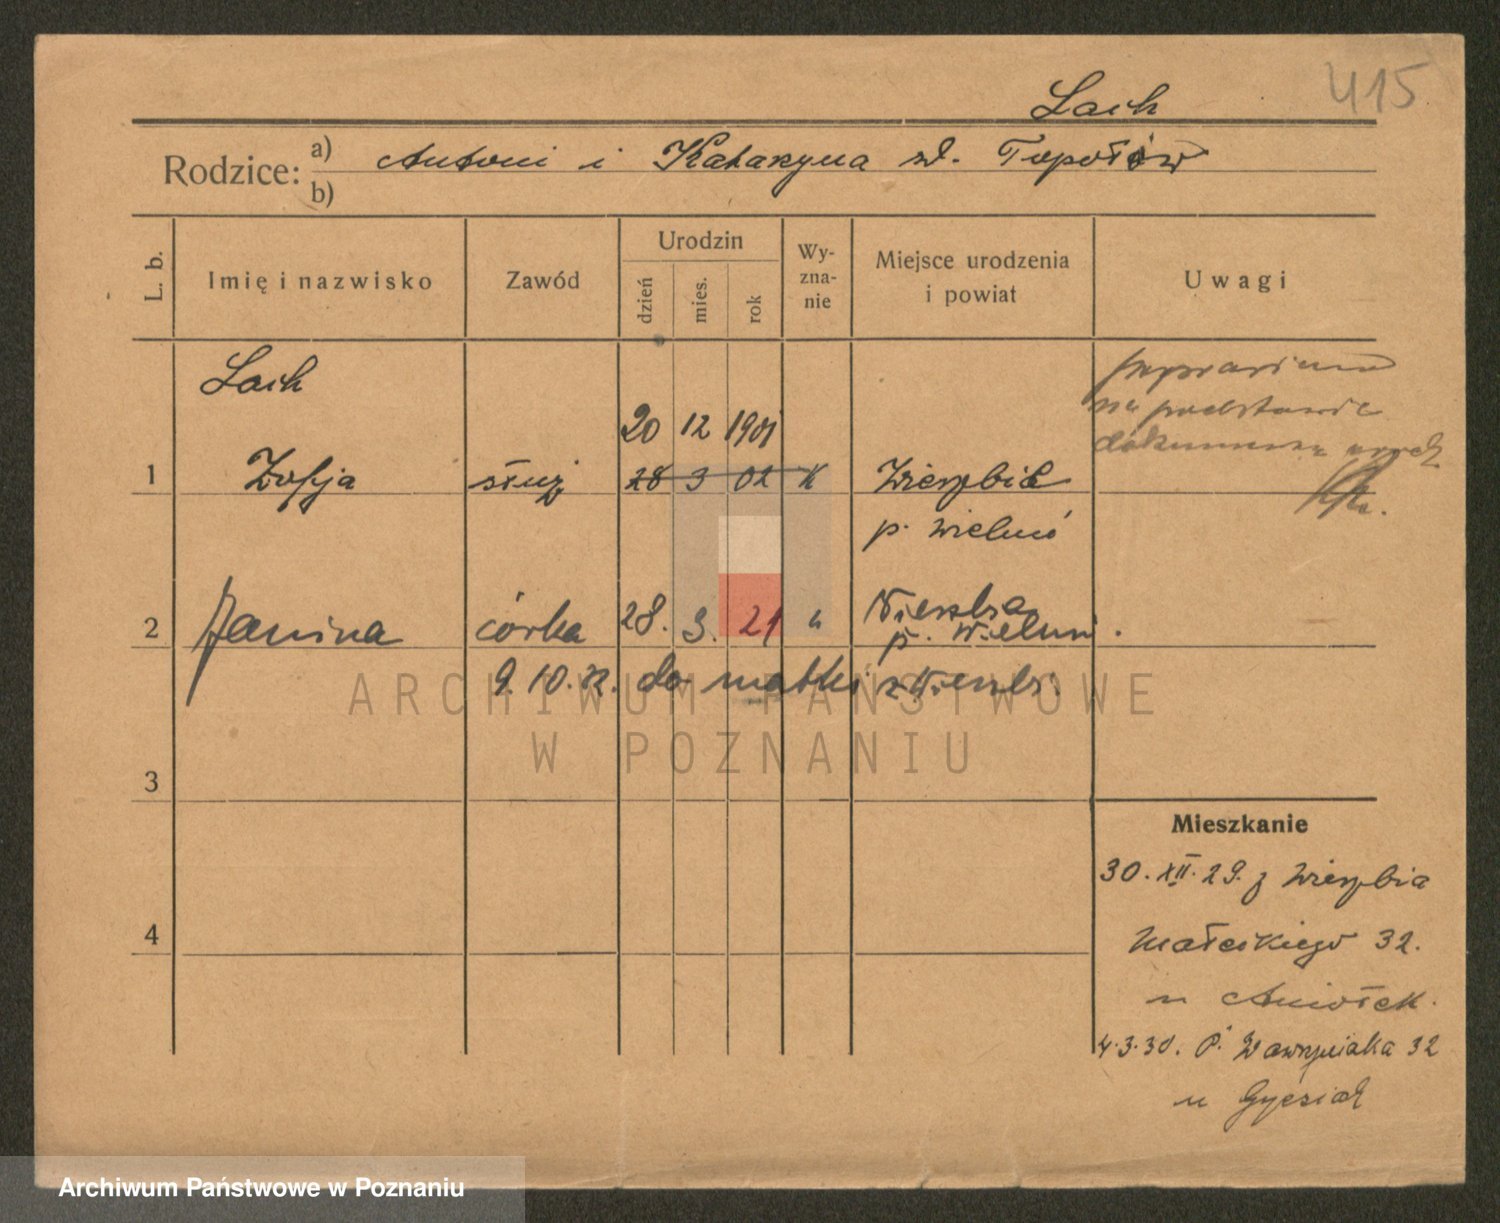 415
Lach
Rodzice: a) Antoni i Katarzyna zd. Topołów
b)
L. b. Imię i nazwisko Zawód Urodzin dzień mies. rok Wy-zna-nie Miejsce urodzenia i powiat Uwagi
Lach
poprawiono
na podstawie
20 12 1901
1 Zofja służ 28 3 02 K Wierzbie
p. Wieluń
2 Janina córka 28. 3. 21 " Wierzba
p. Wieluń.
9.10.32. do matki z Wierzb.
ARCHIWUM PAŃSTWOWE
W POZNANIU
3
Mieszkanie
30. XII. 29. z Wierzbia
4
Małeckiego 32.
u Aniołek.
4.3.30. P. Wawrzyniaka 32
u
Archiwum Państwowe w Poznaniu